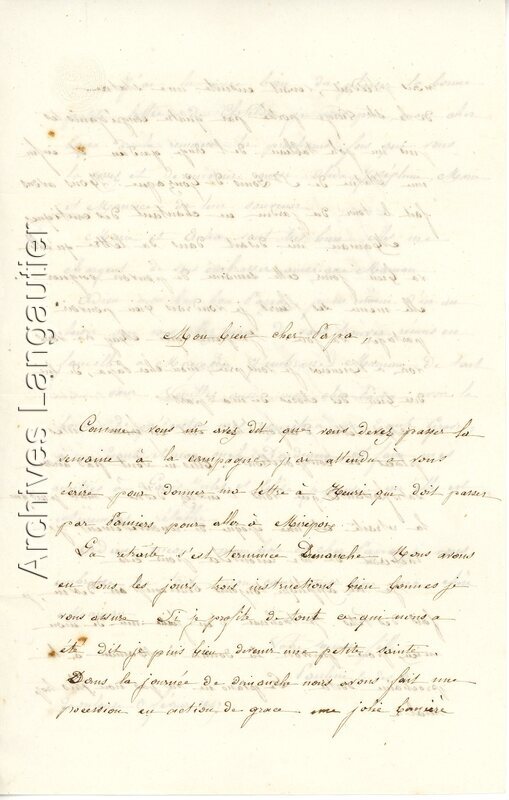 Mon bien cher Papa,
Comme vous m'avez dit que vous devez passer la
semaine à la campagne j'ai attendu à vous
écrire pour donner ma lettre à Henri qui doit passer
par Pamiers pour aller à Mirepoix.
La retraite s'est terminée Dimanche Nous avons
eu tous les jours trois instructions bien bonnes je
vous assure. Si je profite de tout ce qui nous a
été dit je puis bien devenir une petite sainte.
Dans la journée de dimanche nous avons fait une
procession en action de grace une jolie banière
Archives Langautier